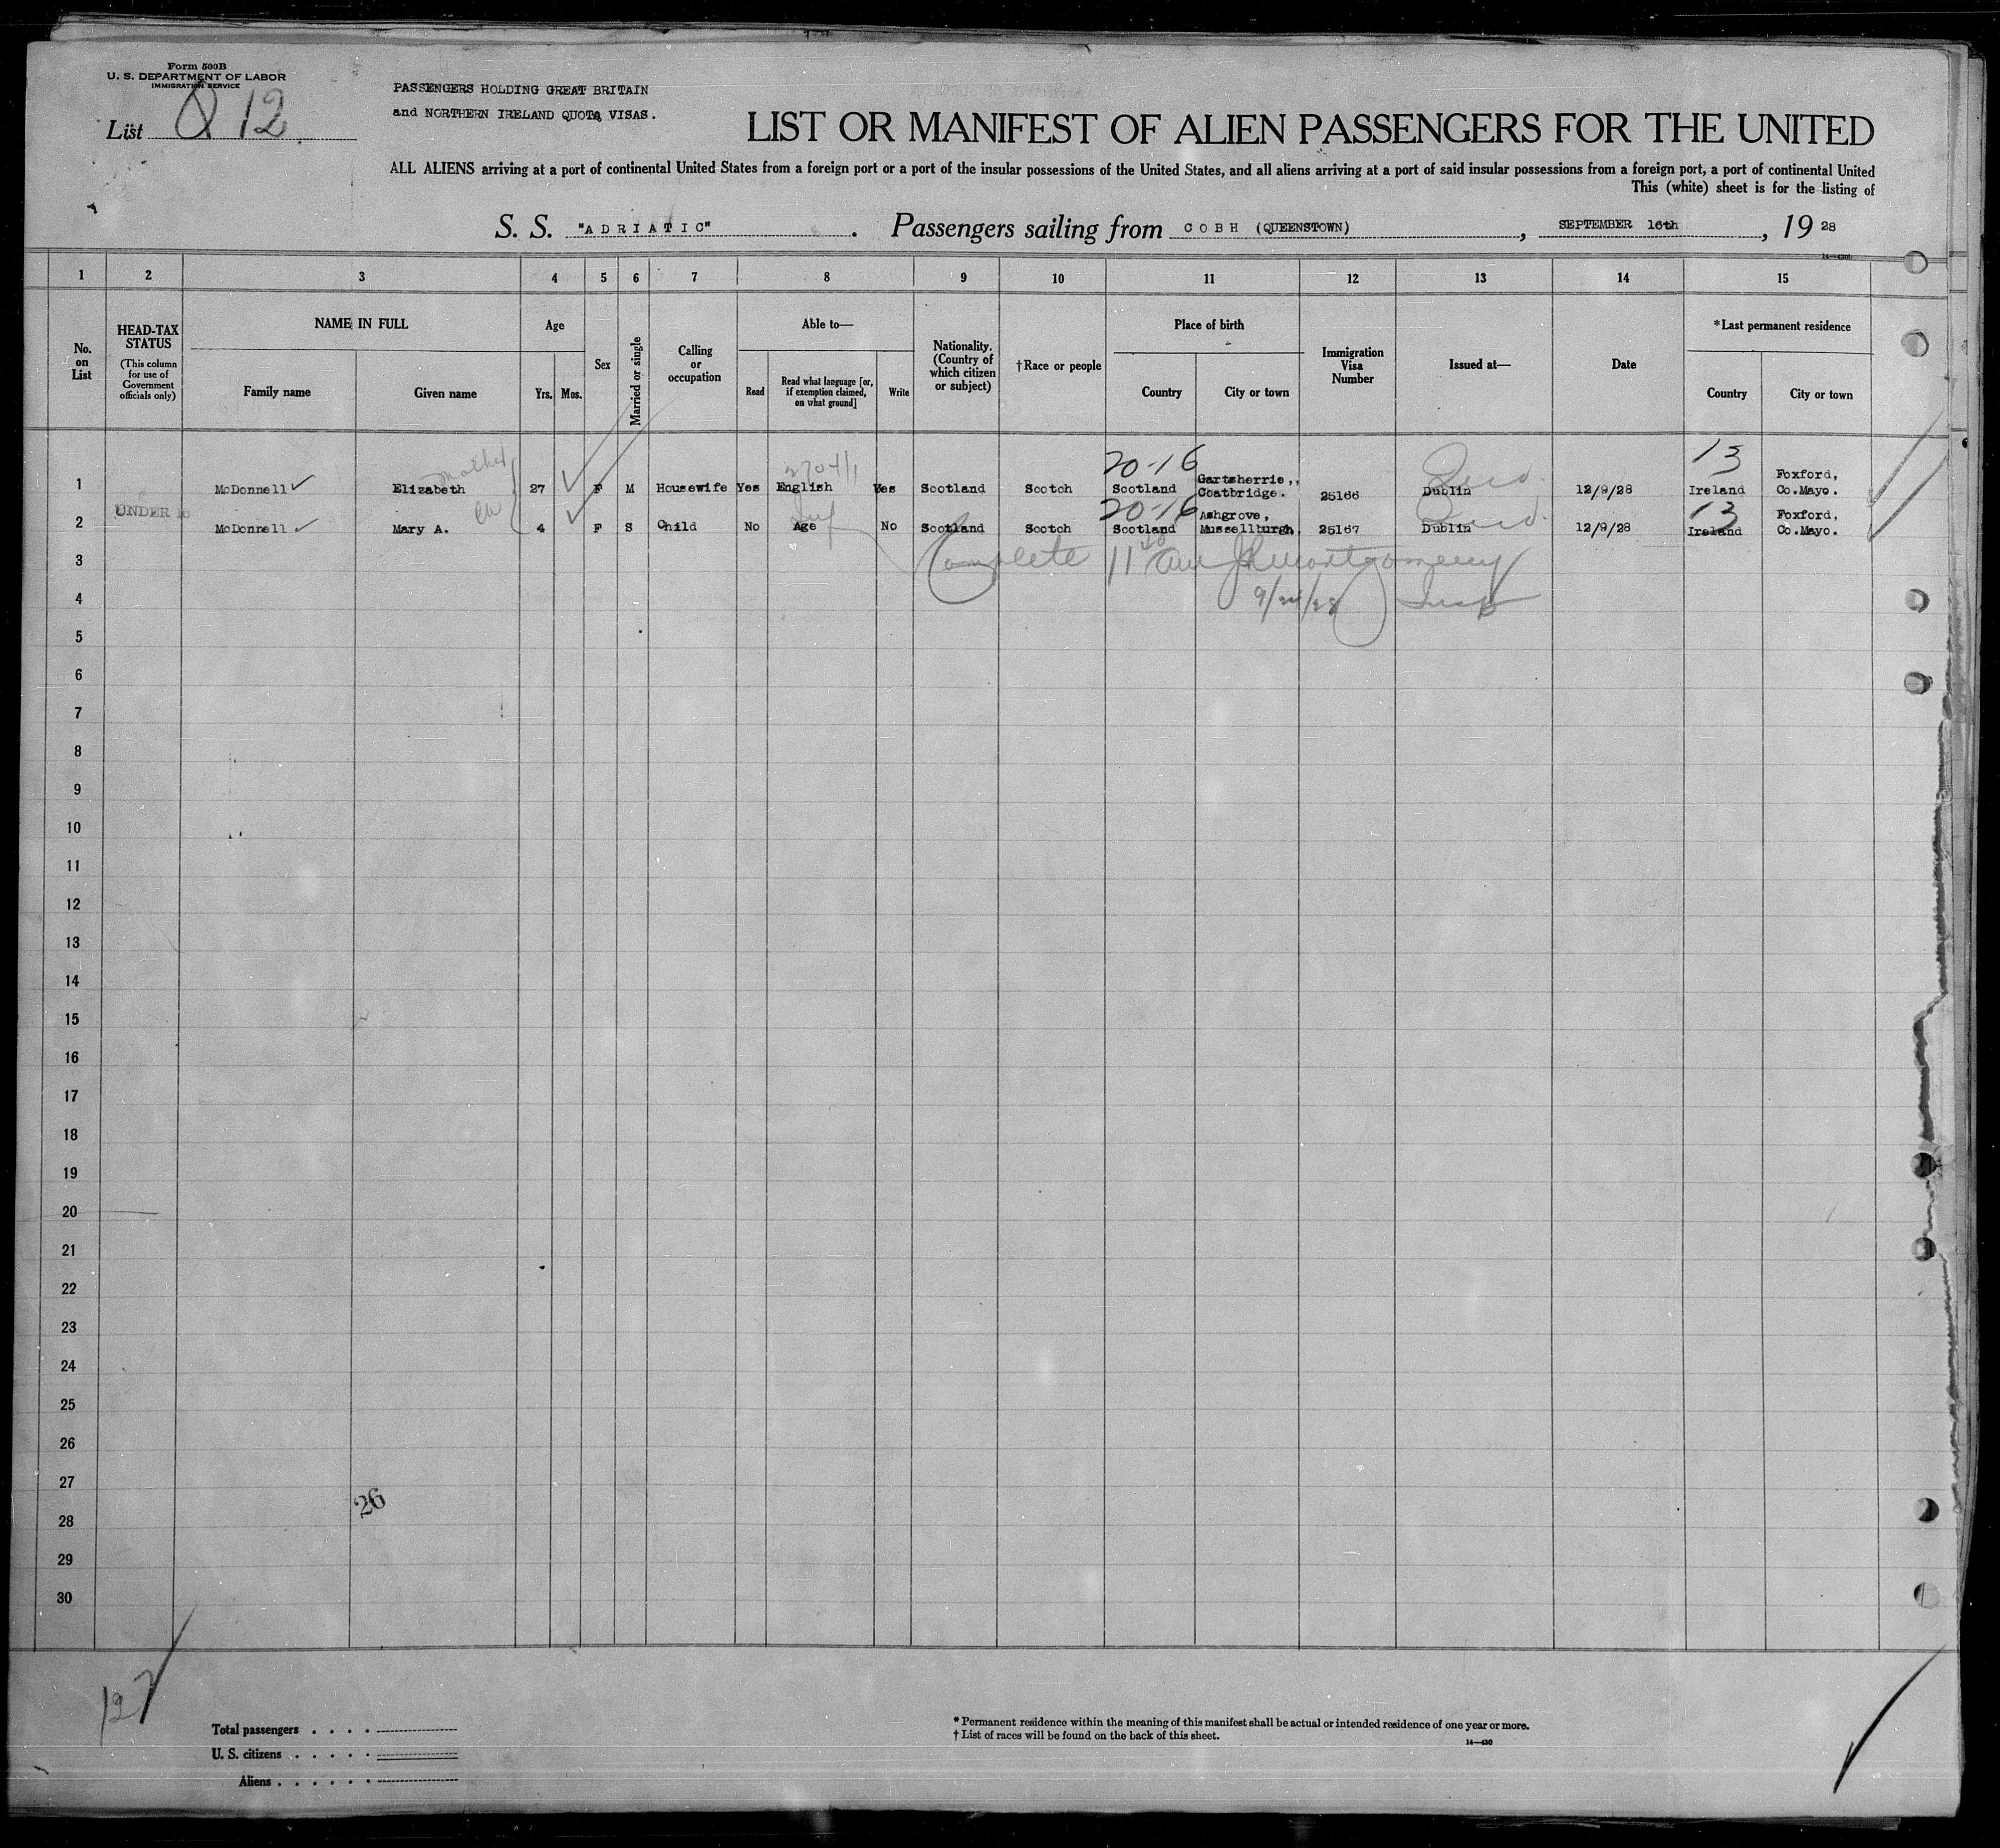 Form 500B
U. S. DEPARTMENT OF LABOR
IMMIGRATION SERVICE
List Q 12
PASSENGERS HOLDING GREAT BRITAIN
and NORTHERN IRELAND QUOTA VISAS.
LIST OR MANIFEST OF ALIEN PASSENGERS FOR THE UNITED
ALL ALIENS arriving at a port of continental United States from a foreign port or a port of the insular possessions of the United States, and all aliens arriving at a port of said insular possessions from a foreign port, a port of continental United
This (white) sheet is for the listing of
S. S. "ADRIATIC" . Passengers sailing from COBH (QUEENSTOWN) , SEPTEMBER 16th , 19 28
1 2 3 4 5 6 7 8 9 10 11 12 13 14 15
No. on List
HEAD-TAX STATUS
(This column for use of Government officials only)
NAME IN FULL
Family name Given name
Age
Yrs. Mos.
Sex
Married or single
Calling or occupation
Able to—
Read
Read what language [or, if exemption claimed, on what ground]
Write
Nationality. (Country of which citizen or subject)
†Race or people
Place of birth
Country City or town
Immigration Visa Number
Issued at—
Date
*Last permanent residence
Country City or town
mother
20-16 13
1 McDonnell Elizabeth 27 F M Housewife Yes English Yes Scotland Scotch Scotland Gartsherrie,, Coatbridge. 25166 Dublin 12/9/28 Ireland Foxford, Co.Mayo.
20-16 13
UNDER 16
2 McDonnell Mary A. 4 F S Child No Age No Scotland Scotch Scotland Ashgrove, Mussellburgh, 25167 Dublin 12/9/28 Ireland Foxford, Co.Mayo.
3 Complete 11 Montgomery
4 Insp
5
6
7
8
9
10
11
12
13
14
15
16
17
18
19
20
21
22
23
24
25
26
27
26
28
29
30
127
Total passengers . . . .
U. S. citizens . . . . .
Aliens . . . . . .
* Permanent residence within the meaning of this manifest shall be actual or intended residence of one year or more.
† List of races will be found on the back of this sheet.
14—430